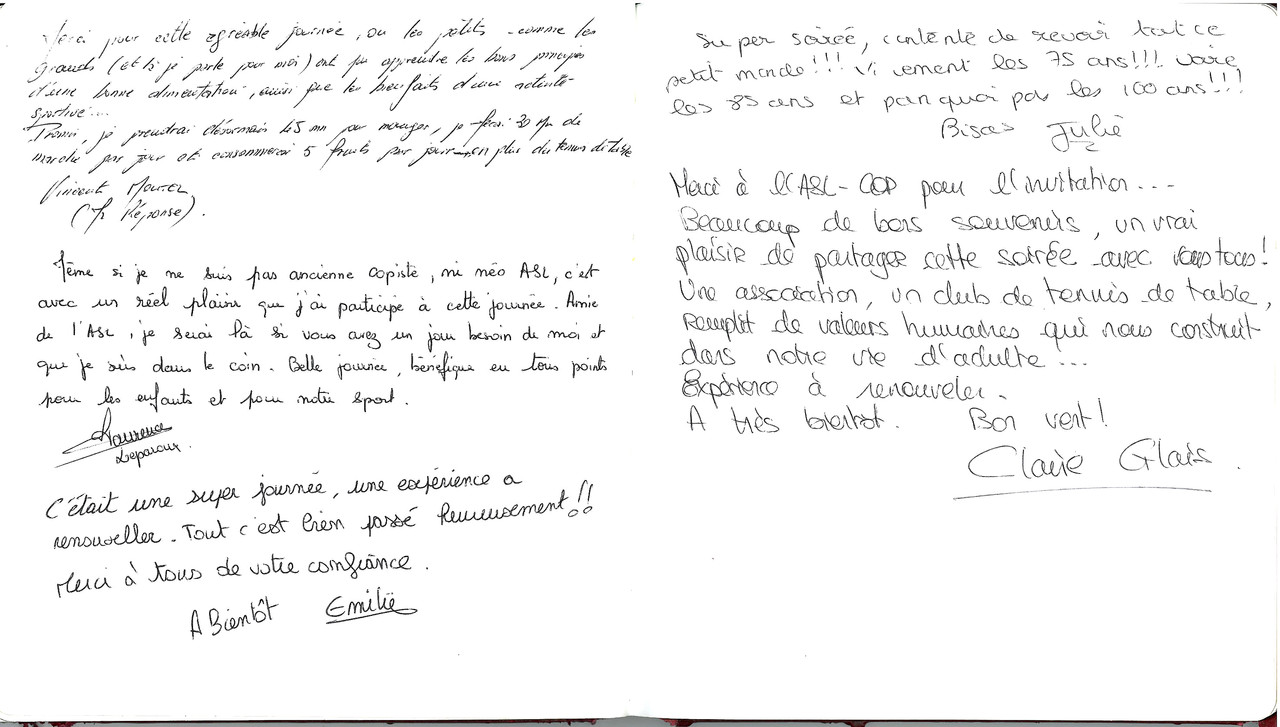 Merci pour cette agréable journée, ou les petits comme les
grands (et là je parle pour moi) ont pu apprendre les bons principes
d'une bonne alimentation, ainsi que les bienfaits d'une activité
sportive...
Promis, je prendrai désormais 45 mn pour manger, je ferai 30 mn de
marche par jour et consommerai 5 fruits par jour en plus du tennis de table
Vincent
(Réponse).
Même si je ne suis pas ancienne copiste, ni néo ASL, c'est
avec un réel plaisir que j'ai participé à cette journée. Amie
de l'ASL, je serai là si vous avez un jour besoin de moi et
que je sois dans le coin. Belle journée, bénéfique en tous points
pour les enfants et pour notre sport.
Laurence
Leparoux.
C'était une super journée, une expérience a
renouveller. Tout c'est bien passé heureusement!!
Merci à tous de votre confiance.
A Bientôt Emilie
Super soirée, contente de revoir tout ce
petit monde!!! Vivement les 75 ans!!! voire
les 85 ans et pourquoi pas les 100 ans!!!
Bises Julie
Merci à l'ASL-COP pour l'invitation...
Beaucoup de bons souvenirs, un vrai
plaisir de partager cette soirée avec vous tous!
Une association, un club de tennis de table,
remplit de valeurs humaines qui nous construit
dans notre vie d'adulte!...
Expérience à renouveler.
A très bientot. Bon vent!
Claire Glais.